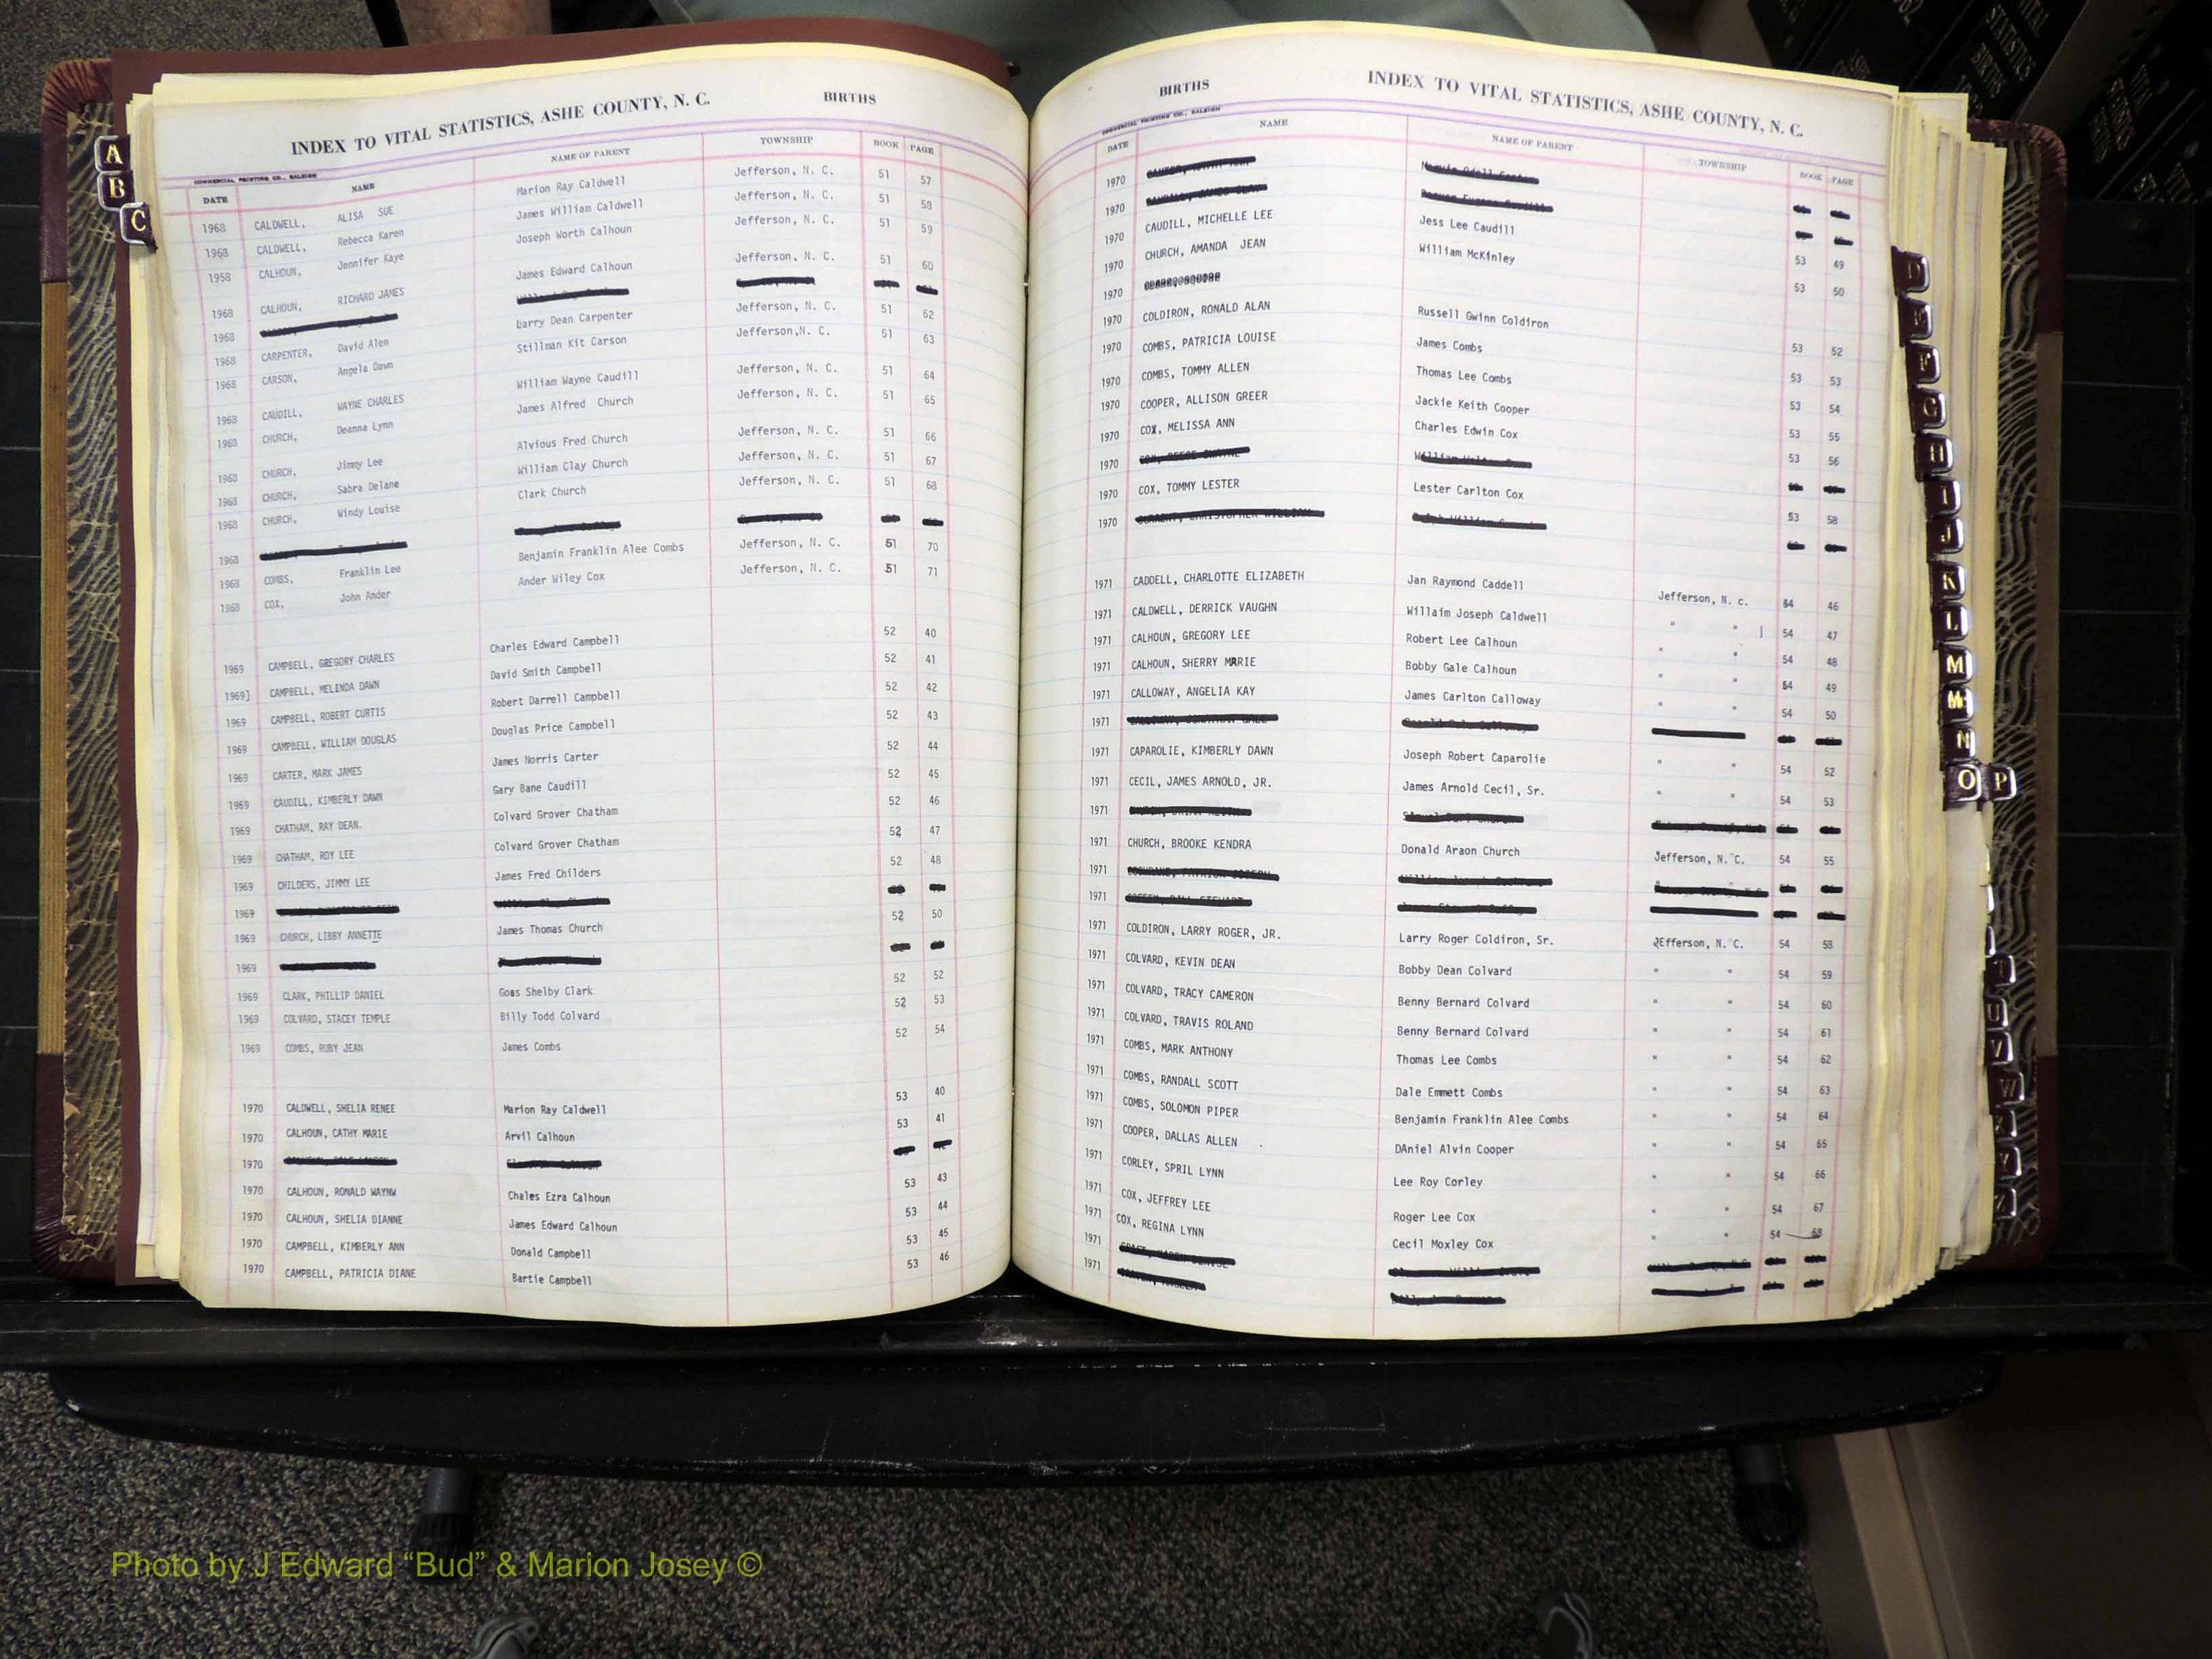 INDEX TO VITAL STATISTICS, ASHE COUNTY, N. C. BIRTHS
COMMERCIAL PRINTING CO., RALEIGH
DATE NAME NAME OF PARENT TOWNSHIP BOOK PAGE
1968 CALDWELL, ALISA SUE Marion Ray Caldwell Jefferson, N. C. 51 57
1968 CALDWELL, Rebecca Karen James William Caldwell Jefferson, N. C. 51 58
1958 CALHOUN, Jennifer Kaye Joseph Worth Calhoun Jefferson, N. C. 51 59
1968 CALHOUN, RICHARD JAMES James Edward Calhoun Jefferson, N. C. 51 60
1968
1968 CARPENTER, David Alen Larry Dean Carpenter Jefferson, N. C. 51 62
1968 CARSON, Angela Dawn Stillman Kit Carson Jefferson,N. C. 51 63
1968 CAUDILL, WAYNE CHARLES William Wayne Caudill Jefferson, N. C. 51 64
1968 CHURCH, Deanna Lynn James Alfred Church Jefferson, N. C. 51 65
1968 CHURCH, Jimmy Lee Alvious Fred Church Jefferson, N. C. 51 66
1968 CHURCH, Sabra Delane William Clay Church Jefferson, N. C. 51 67
1968 CHURCH, Windy Louise Clark Church Jefferson, N. C. 51 68
1968
1968 COMBS, Franklin Lee Benjamin Franklin Alee Combs Jefferson, N. C. 51 70
1968 COX, John Ander Ander Wiley Cox Jefferson, N. C. 51 71
1969 CAMPBELL, GREGORY CHARLES Charles Edward Campbell 52 40
1969] CAMPBELL, MELINDA DAWN David Smith Campbell 52 41
1969 CAMPBELL, ROBERT CURTIS Robert Darrell Campbell 52 42
1969 CAMPBELL, WILLIAM DOUGLAS Douglas Price Campbell 52 43
1969 CARTER, MARK JAMES James Norris Carter 52 44
1969 CAUDILL, KIMBERLY DAWN Gary Bane Caudill 52 45
1969 CHATHAM, RAY DEAN. Colvard Grover Chatham 52 46
1969 CHATHAM, ROY LEE Colvard Grover Chatham 52 47
1969 CHILDERS, JIMMY LEE James Fred Childers 52 48
1969
1969 CHURCH, LIBBY ANNETTE James Thomas Church 52 50
1969
1969 CLARK, PHILLIP DANIEL Goss Shelby Clark 52 52
1969 COLVARD, STACEY TEMPLE Billy Todd Colvard 52 53
1969 COMBS, RUBY JEAN James Combs 52 54
1970 CALDWELL, SHELIA RENEE Marion Ray Caldwell 53 40
1970 CALHOUN, CATHY MARIE Arvil Calhoun 53 41
1970
1970 CALHOUN, RONALD WAYNW Chales Ezra Calhoun 53 43
1970 CALHOUN, SHELIA DIANNE James Edward Calhoun 53 44
1970 CAMPBELL, KIMBERLY ANN Donald Campbell 53 45
1970 CAMPBELL, PATRICIA DIANE Bartie Campbell 53 46
BIRTHS INDEX TO VITAL STATISTICS, ASHE COUNTY, N. C.
COMMERCIAL PRINTING CO., RALEIGH
DATE NAME NAME OF PARENT TOWNSHIP BOOK PAGE
1970
1970
1970 CAUDILL, MICHELLE LEE Jess Lee Caudill 53 49
1970 CHURCH, AMANDA JEAN William McKinley 53 50
1970
1970 COLDIRON, RONALD ALAN Russell Gwinn Coldiron 53 52
1970 COMBS, PATRICIA LOUISE James Combs 53 53
1970 COMBS, TOMMY ALLEN Thomas Lee Combs 53 54
1970 COOPER, ALLISON GREER Jackie Keith Cooper 53 55
1970 COX, MELISSA ANN Charles Edwin Cox 53 56
1970
1970 COX, TOMMY LESTER Lester Carlton Cox 53 58
1970
1971 CADDELL, CHARLOTTE ELIZABETH Jan Raymond Caddell Jefferson, N. c. 54 46
1971 CALDWELL, DERRICK VAUGHN Willaim Joseph Caldwell " " ] 54 47
1971 CALHOUN, GREGORY LEE Robert Lee Calhoun " " 54 48
1971 CALHOUN, SHERRY MARIE Bobby Gale Calhoun " " 54 49
1971 CALLOWAY, ANGELIA KAY James Carlton Calloway " " 54 50
1971
1971 CAPAROLIE, KIMBERLY DAWN Joseph Robert Caparolie " " 54 52
1971 CECIL, JAMES ARNOLD, JR. James Arnold Cecil, Sr. " " 54 53
1971
1971 CHURCH, BROOKE KENDRA Donald Araon Church Jefferson, N. C. 54 55
1971
1971
1971 COLDIRON, LARRY ROGER, JR. Larry Roger Coldiron, Sr. JEfferson, N. C. 54 58
1971 COLVARD, KEVIN DEAN Bobby Dean Colvard " " 54 59
1971 COLVARD, TRACY CAMERON Benny Bernard Colvard " " 54 60
1971 COLVARD, TRAVIS ROLAND Benny Bernard Colvard " " 54 61
1971 COMBS, MARK ANTHONY Thomas Lee Combs " " 54 62
1971 COMBS, RANDALL SCOTT Dale Emmett Combs " " 54 63
1971 COMBS, SOLOMON PIPER Benjamin Franklin Alee Combs " " 54 64
1971 COOPER, DALLAS ALLEN DAniel Alvin Cooper " " 54 65
1971 CORLEY, SPRIL LYNN Lee Roy Corley " " 54 66
1971 COX, JEFFREY LEE Roger Lee Cox " " 54 67
1971 COX, REGINA LYNN Cecil Moxley Cox " " 54 68
1971
1971
A
B
C
D
E
F
G
H
I
J
K
L
M
Mc
N
O P
U
V
W
Photo by J Edward “Bud” & Marion Josey ©